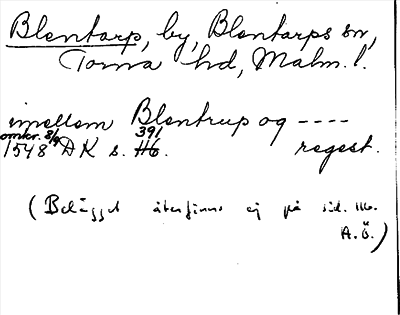 Blentarp, by, Blentarps sn,
Torna hd, Malm. l.
mellem Blentrup og ----
omkr. 8/9 391
1548 DK s. H6. regest.
(Belägget återfinns ej på sid. 116.
A.Ö.)